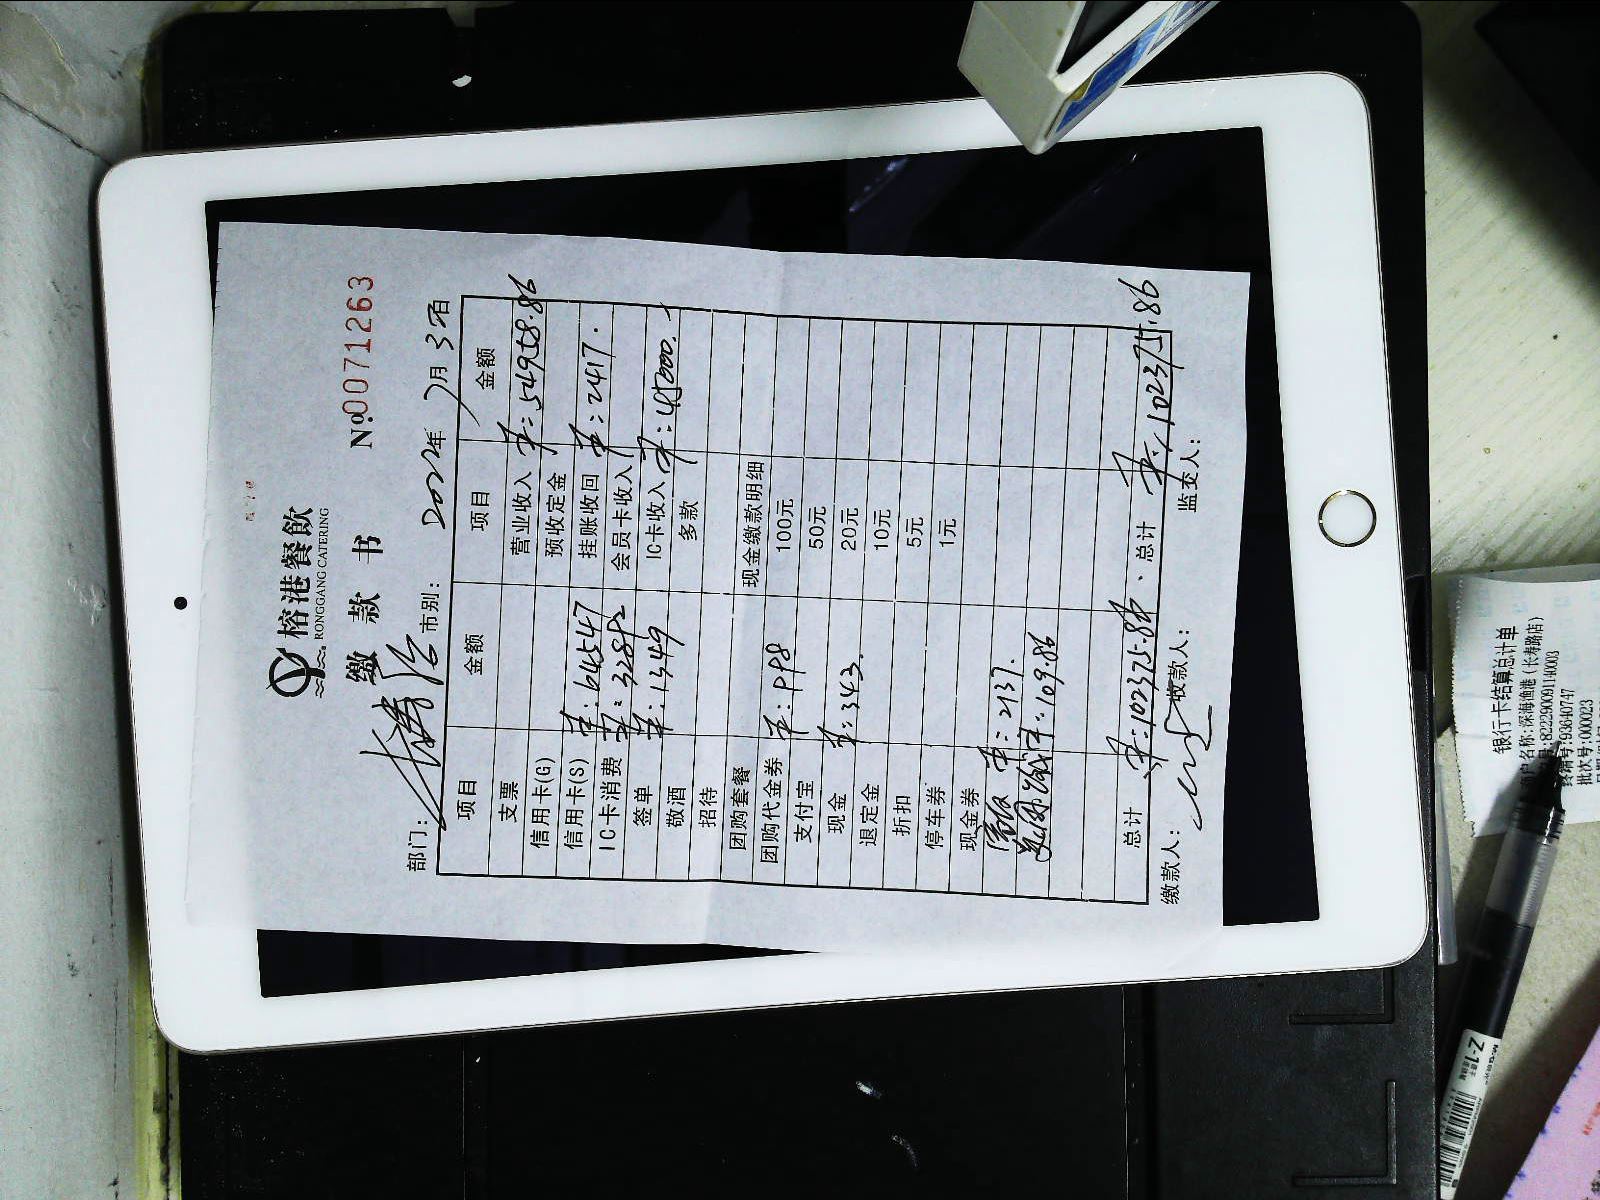 榕港餐飲
RONGGANG CATERING
缴款书 №0071263
部门： 市别： 2022年 7月 3日
项目 金额 项目 金额
支票 营业收入 ¥:54958.86
信用卡(G) 预收定金
信用卡(S) ¥:64547 挂账收回 ¥:2417.
IC卡消费 ¥:32892 会员卡收入
签单 ¥:1349 IC卡收入 ¥:45000.
敬酒 多款
招待
团购套餐 现金缴款明细
团购代金券 ¥:998 100元
支付宝 50元
现金 ¥:343. 20元
退定金 10元
折扣 5元
停车券 1元
现金券
¥:2137.
¥:109.86
总计 ¥:102375.86 总计 ¥:102375.86
缴款人： 收款人： 监交人：
银行卡结算总计单
户名称:深海渔港（长寿路店）
号:822290091140003
终端号:93640747
批次号:000023
Z-1